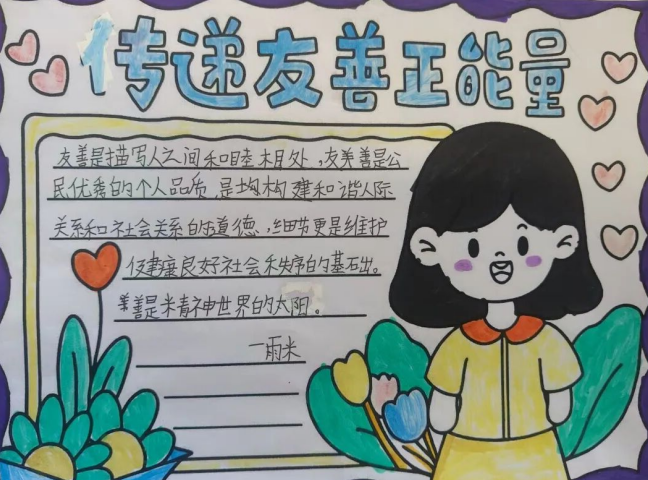 传递友善正能量
友善是描写人之间和睦相处,友善是公
民优秀的个人品质,是均构建和谐人际
关系和社会关系的道德,细节更是维护
健康良好社会秩序的基石出。
善是米青神世界的太阳。
一雨米